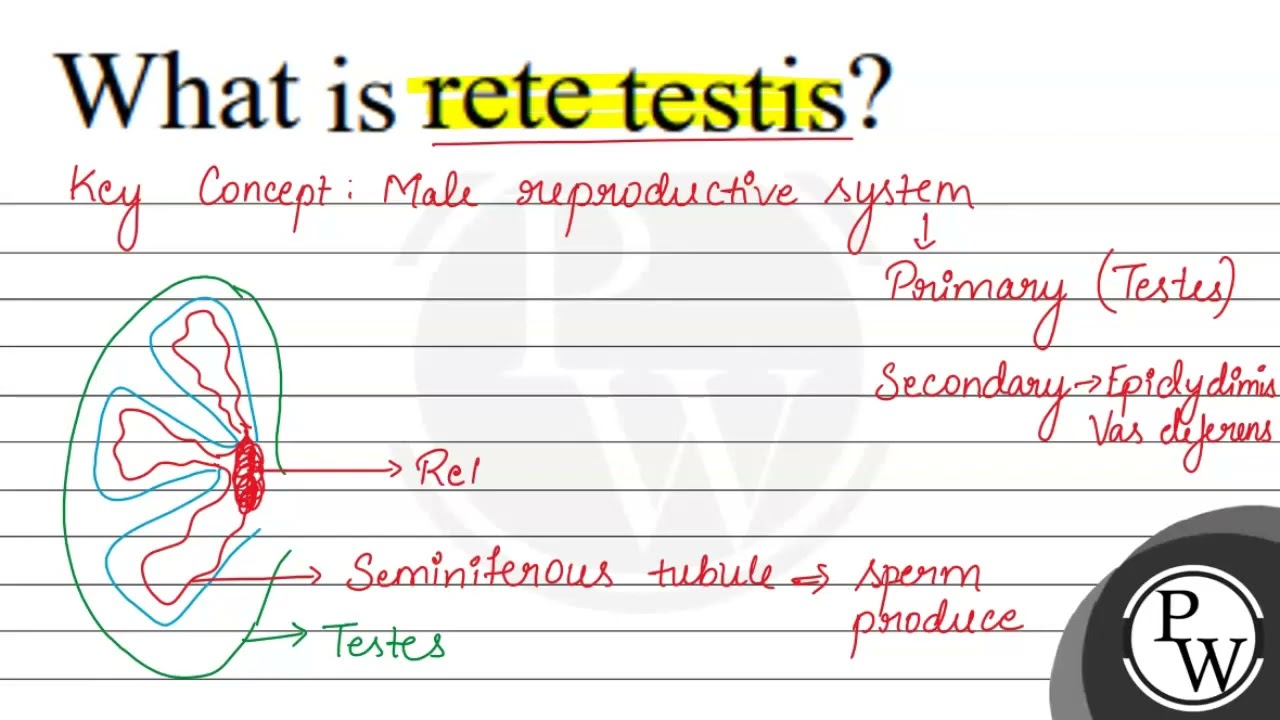 What is rete testis?
Key Concept: Male reproductive system
Primary (Testes)
Secondary → Epidydimis
Vas deferens
Ret
Seminiferous tubule ⇒ sperm
produce
Testes
PW
PW